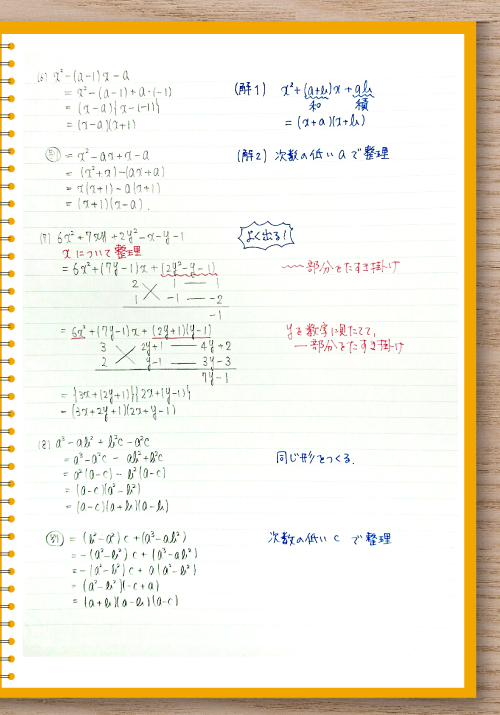 (6) x²-(a-1)x-a
= x²-(a-1)+a·(-1)
= (x-a){x-(-1)}
= (x-a)(x+1)
(解1) x²+(a+b)x+ab
和 積
= (x+a)(x+b)
(別) = x²-ax+x-a
= (x²+x)-(ax+a)
= x(x+1)-a(x+1)
= (x+1)(x-a).
(解2) 次数の低いaで整理
(7) 6x²+7xy+2y²-x-y-1
よく出る!
xについて整理
= 6x²+(7y-1)x+(2y²-y-1)
部分をたすき掛け
2 1 — 1
1 -1 — -2
-1
= 6x²+(7y-1)x+(2y+1)(y-1)
yを数字に見たてて、
3 2y+1 — 4y+2
一部分をたすき掛け
2 y-1 — 3y-3
7y-1
= {3x+(2y+1)}{2x+(y-1)}
= (3x+2y+1)(2x+y-1)
(8) a³-ab²+b²c-a²c
= a³-a²c-ab²+b²c
同じ形をつくる.
= a²(a-c)-b²(a-c)
= (a-c)(a²-b²)
= (a-c)(a+b)(a-b)
(別) = (b²-a²)c+(a³-ab²)
次数の低いcで整理
= -(a²-b²)c+(a³-ab²)
= -(a²-b²)c+a(a²-b²)
= (a²-b²)(-c+a)
= (a+b)(a-b)(a-c)